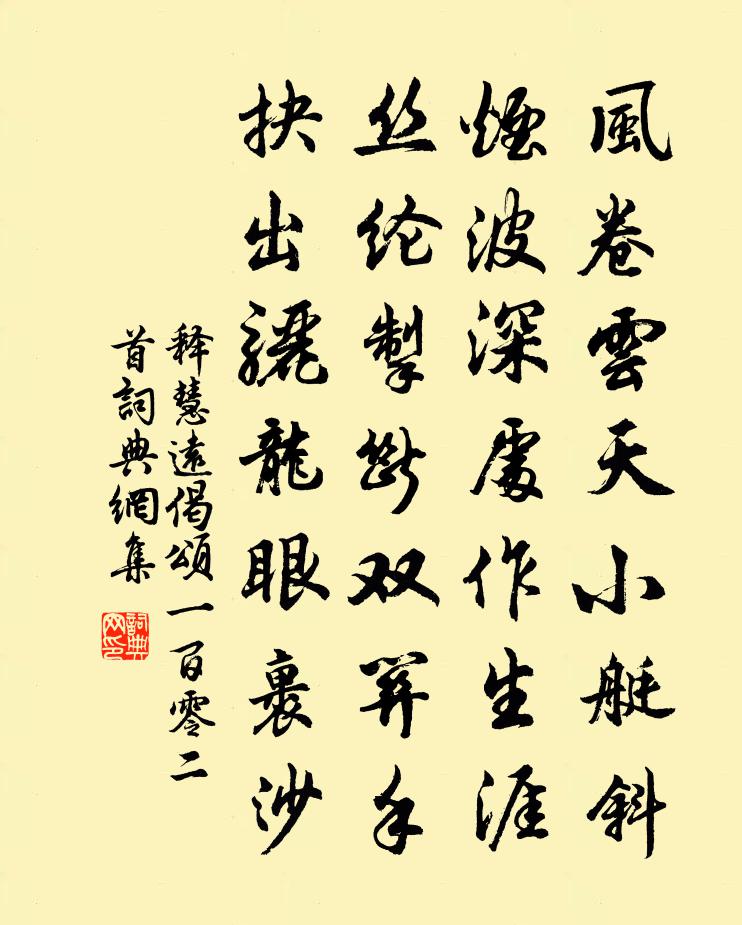 風卷雲天小艇斜
煙波深處作生涯
丝纶掣斷双笄手
抉出驪龍眼裏沙
释慧遠偈頌一百零二
首詞典網集
詞典网印